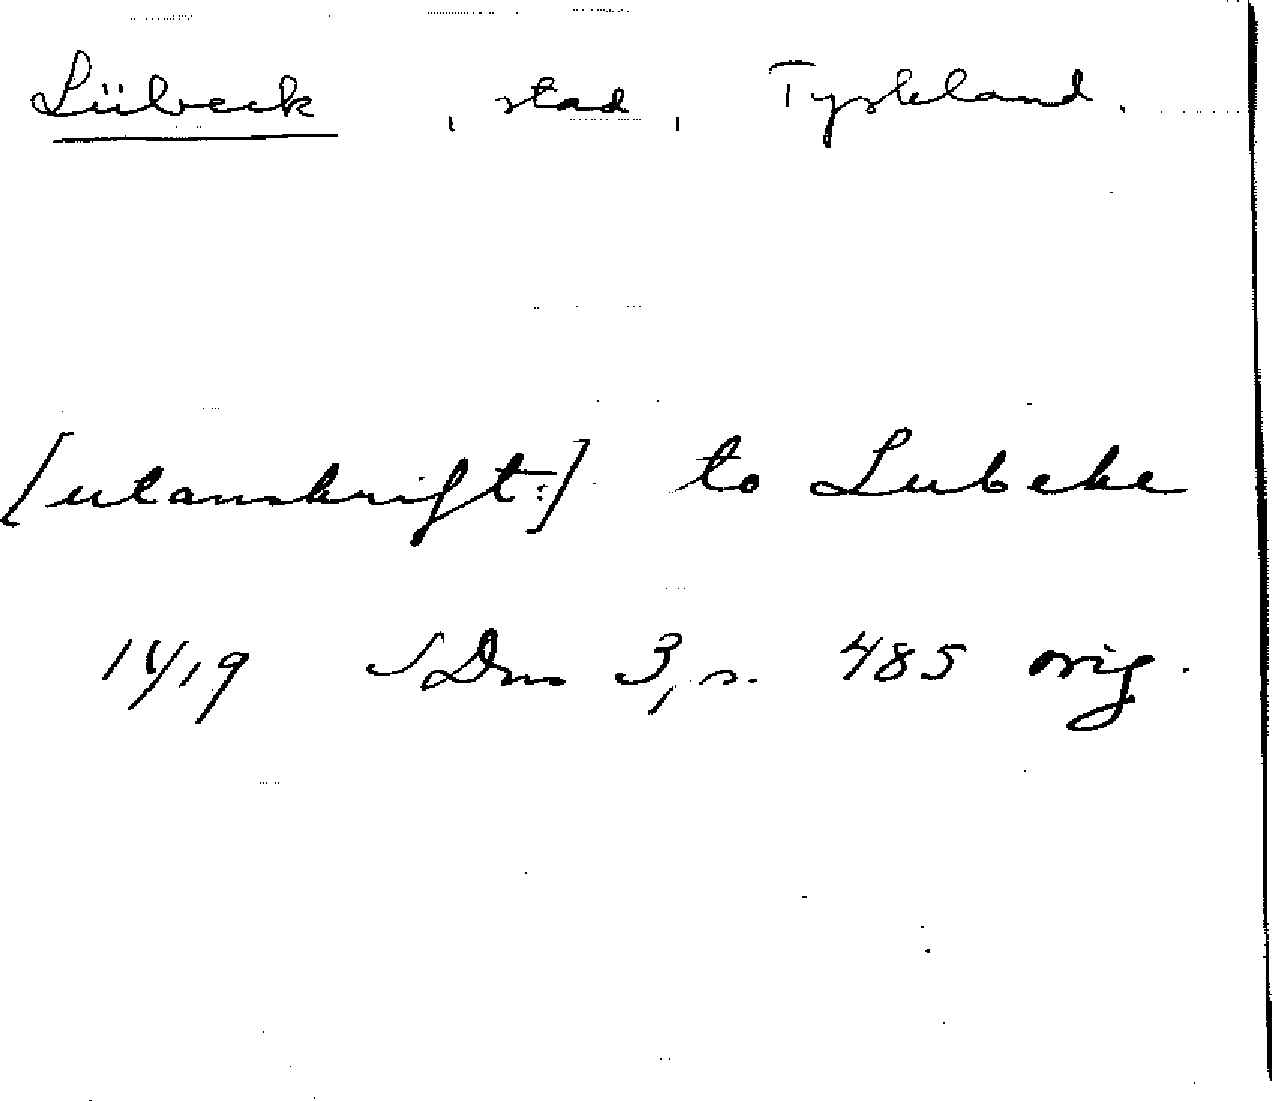 Lübeck, stad, Tyskland.
[utanskrift:] to Lubeke
1419 SDns 3, s. 485 orig.